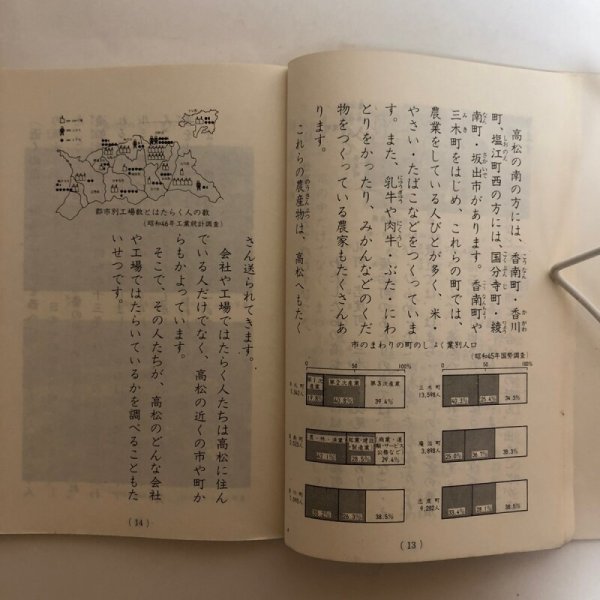 高松の南の方には、香南町・香川
町、塩江町西の方には、国分寺町・綾
南町・坂出市があります。香南町や
三木町をはじめ、これらの町では、
農業をしている人びとが多く、米・
やさい・たばこなどをつくっていま
す。また、乳牛や肉牛・ぶた・にわ
とりをかったり、みかんなどのくだ
物をつくっている農家もたくさんあ
ります。
これらの農産物は、高松へもたく
市のまわりの町のしょく業別人口
(昭和45年国勢調査)
0 50 100%
第2次産業
第3次産業
39.4%
農・林・漁業
鉱業・建設・製造業
29.4%
38.5%
0 50 100%
三木町
13,598人
34.5%
庵治町
3,898人
38.5%
(13)
郡市別工場数とはたらく人の数
(昭和46年工業統計調査)
さん送られてきます。
会社や工場ではたらく人たちは高松に住ん
でいる人だけでなく、高松の近くの市や町か
らもかよっています。
そこで、その人たちが、高松のどんな会社
や工場ではたらいているかを調べることもた
いせつです。
(14)